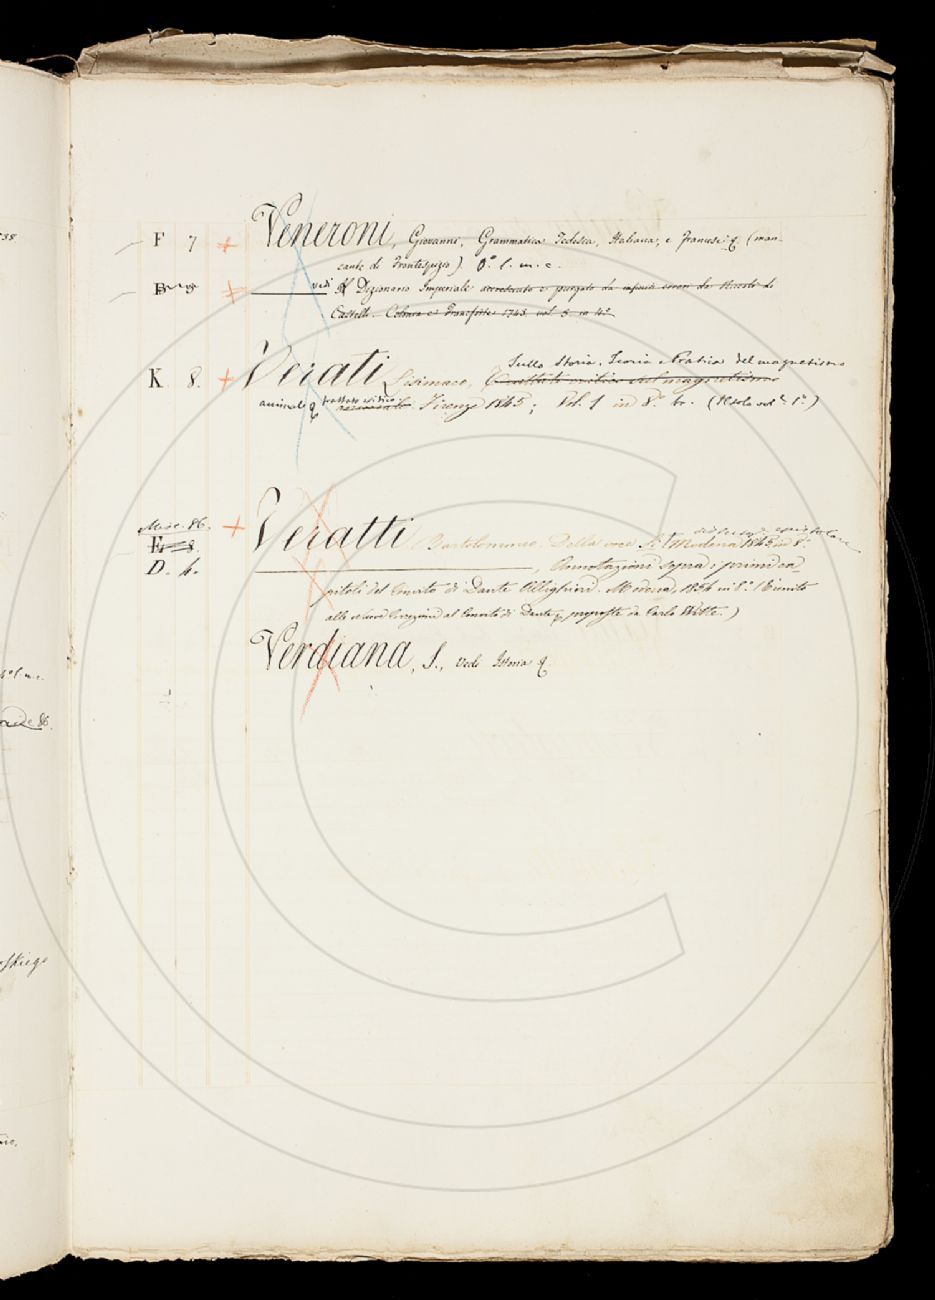 F 7 + Veneroni, Giovanni, Grammatica Tedesca, Italiana, e Francese (man-
cante di Frontespizio). 8.° l. m. e.
+ vedi Il Dizionario Imperiale accresciuto e purgato da infiniti errori da Nicolò di
Castelli. Colonia e Francfort 1743. vol. in 4.°
Sulla Storia, Teoria e Pratica del magnetismo
K 8. + Verati Lisimaco, Trattato critico del magnetismo
animale trattato critico Firenze 1845; Vol. 1 in 8.° br. (Il solo vol. 1.°)
Misc. 86. + Veratti Bartolommeo. Della voce Si Modena 1845 in 8.°
E. 8.
D. 4. , Annotazioni sopra i primi ca-
pitoli del Convito di Dante Allighieri. Modena, 1854 in 8.° (Riunito
alle Correzioni al Convito di Dante, proposte da Carlo Witte.)
Verdiana, S., vedi Istoria